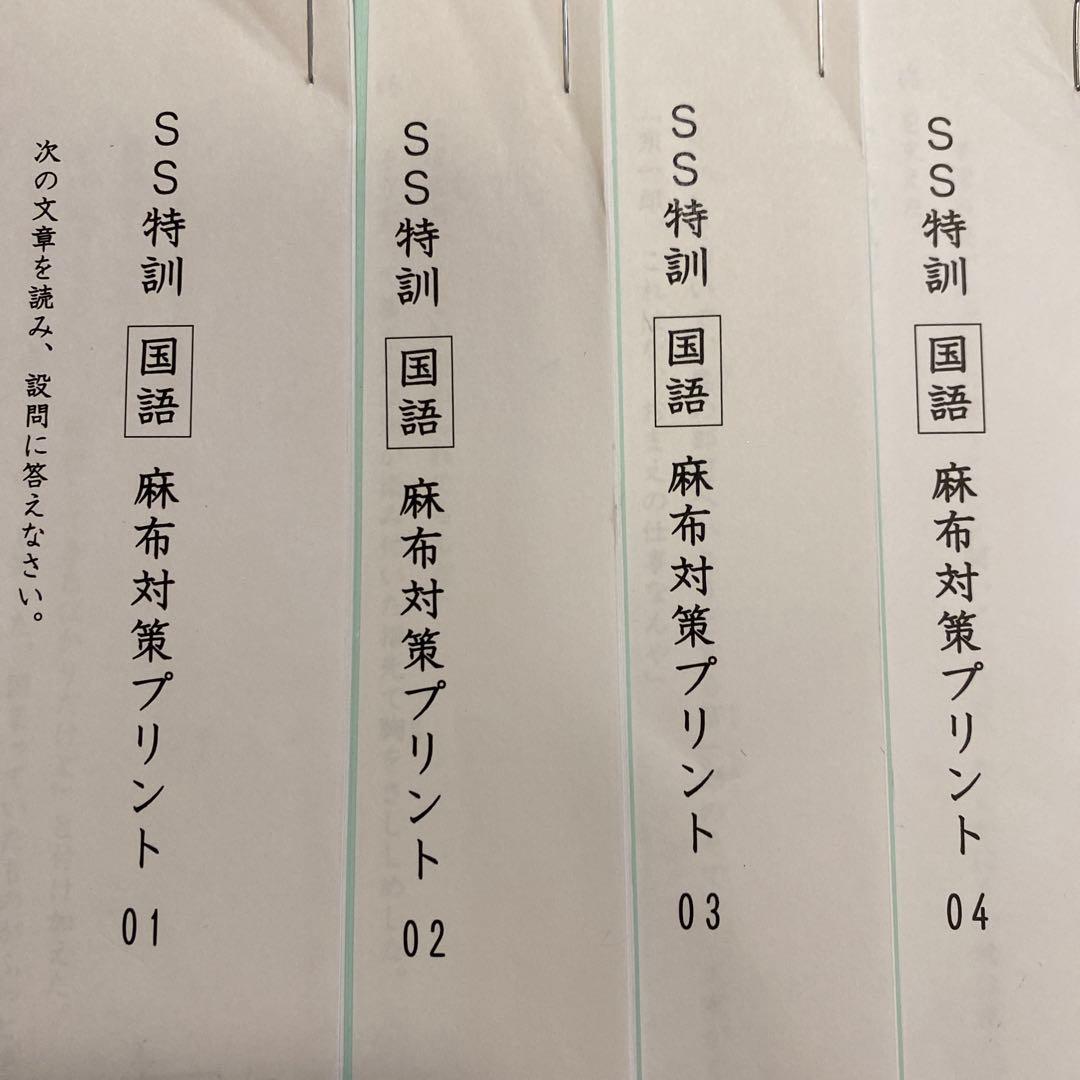 SS特訓 国語 麻布対策プリント 01
次の文章を読み、設問に答えなさい。
SS特訓 国語 麻布対策プリント 02
SS特訓 国語 麻布対策プリント 03
SS特訓 国語 麻布対策プリント 04